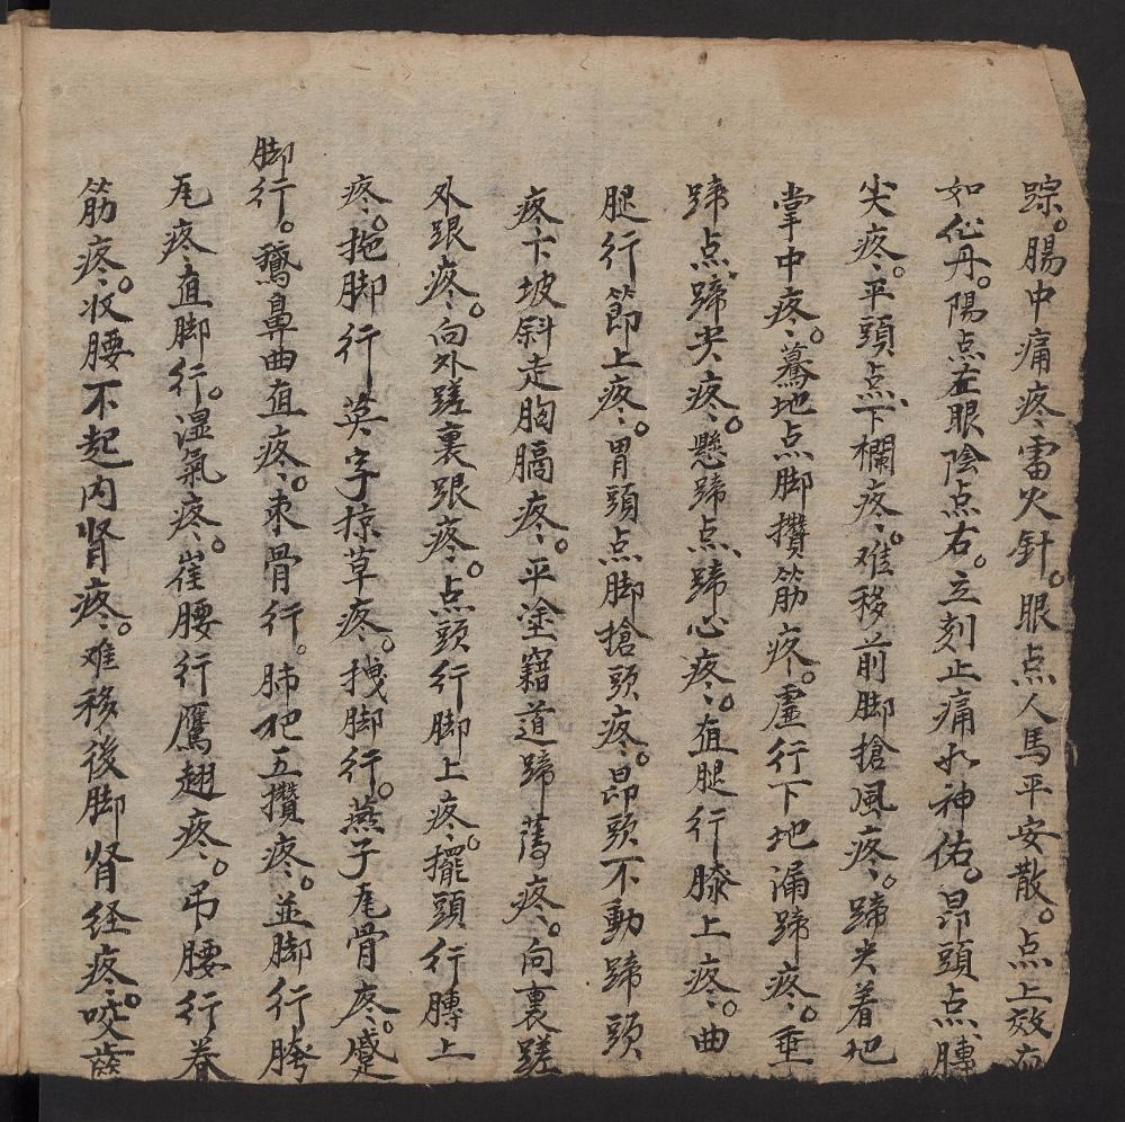 踪。腸中痛疼雷火針。眼点人馬平安散。点上效应
如仙丹。陽点左眼陰点右。立刻止痛如神佑。昂頭点、膊
尖疼。平頭点、下欄疼。难移前脚搶風疼。蹄尖着地
掌中疼。驀地点脚攢筋疼。虛行下地漏蹄疼。垂
蹄点、蹄尖疼。懸蹄点、蹄心疼。直腿行膝上疼。曲
腿行節上疼。胃頭点脚搶頭疼。昂頭不動蹄頭
疼下坡斜走胸膈疼。平塗窄道蹄薄疼。向裏蹉
外跟疼。向外蹉裏跟疼。点頭行脚上疼。擺頭行膊上
疼。拖脚行莫字掠草疼。拽脚行。燕子尾骨疼。蹙
脚行。鵞鼻曲直疼。束骨行。肺把五攢疼。並脚行胯
尾疼直脚行。湿氣疼。崔腰行鴈翅疼。吊腰行脊
筋疼。收腰不起内肾疼。难移後脚肾经疼。咬齒